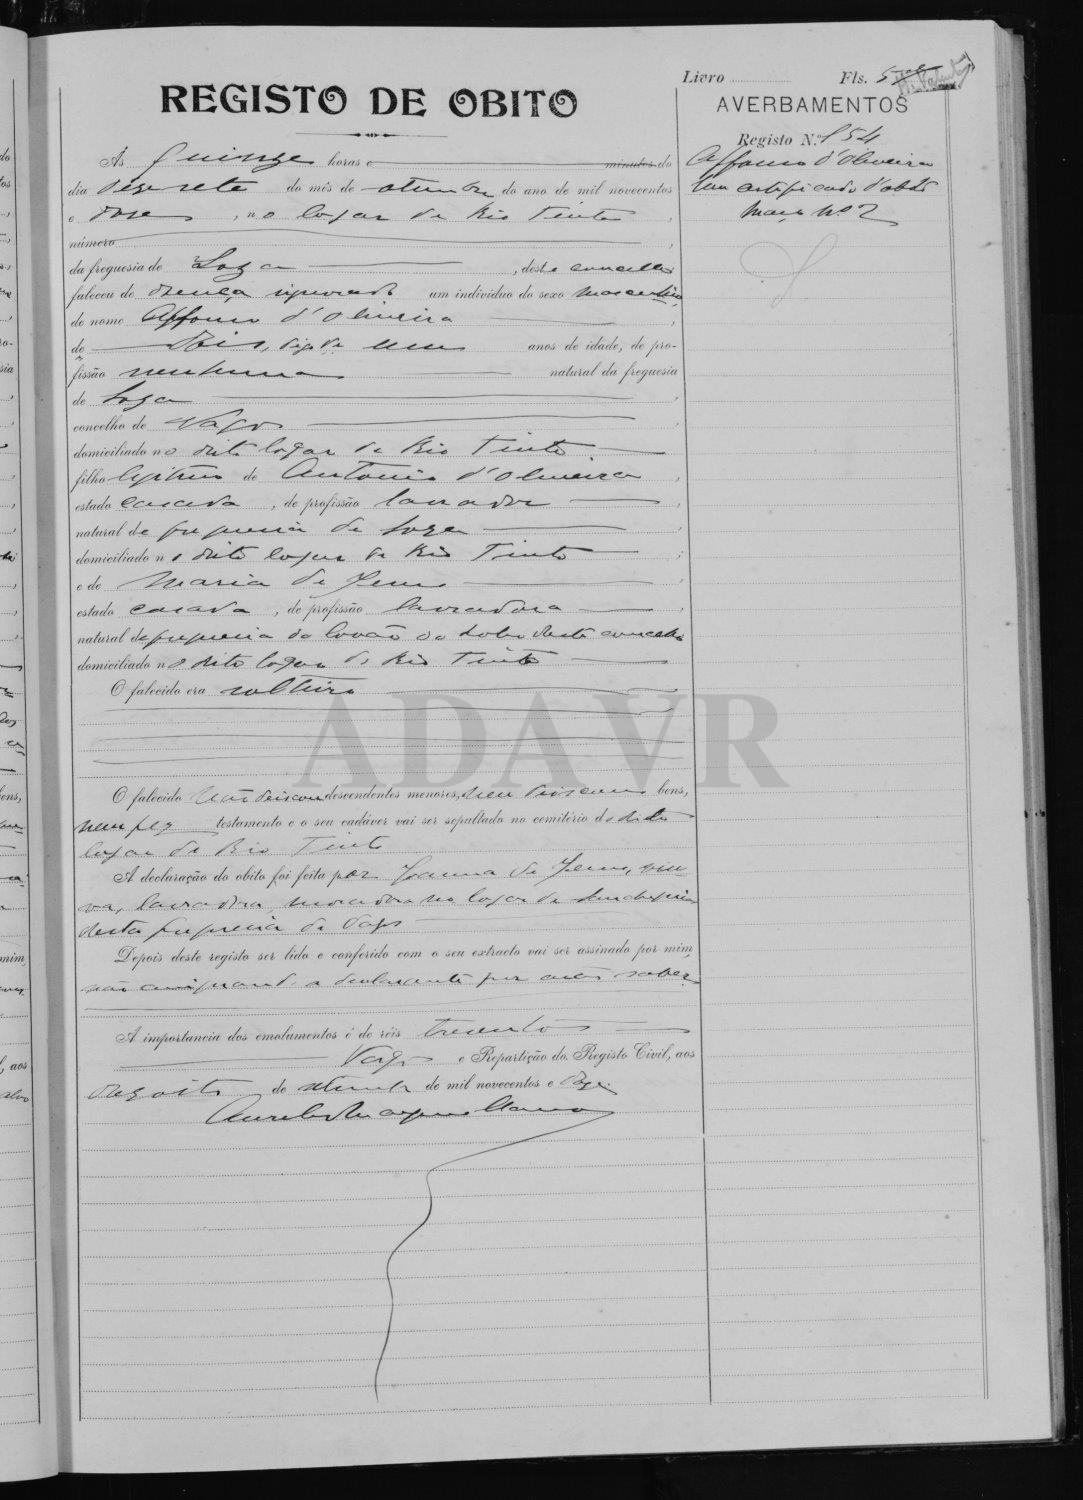 REGISTO DE OBITO
Livro Fls. 5
AVERBAMENTOS
Registo N.º 154
Affonso d'Oliveira
tem certificado d'obito
Maço Nº 2
Ás quinze horas e minutos do
dia desesete do mês de setembro do ano de mil novecentos
e dose, no logar de Rio Tinto,
número
da freguesia de Soza, deste concelho
faleceu de doença ignorada um individuo do sexo masculino
de nome Affonso d'Oliveira,
de Dois, digo de um anos de idade, de pro-
fissão nenhuma natural da freguesia
de Soza
concelho de Vagos
domiciliado no dito logar de Rio Tinto
filho legitimo de Antonio d'Oliveira,
estado casado, de profissão lavrador,
natural da freguesia de Soza
domiciliado no dito logar de Rio Tinto;
e de Maria de Jesus,
estado casada, de profissão lavradora,
natural da freguesia do Covão do Lobo deste concelho
domiciliado no dito logar de Rio Tinto
O falecido era solteiro
O falecido não deixou descendentes menores, nem deixou bens,
nem fez testamento e o seu cadáver vai ser sepultado no cemitério do dito
logar de Rio Tinto
A declaração do obito foi feita por Joanna de Jesus, viu-
va, lavradora, moradora no logar de
desta freguesia de Vagos
Depois deste registo ser lido e conferido com o seu extracto vai ser assinado por mim,
não assignando a declarante por não saber
A importancia dos emolumentos é de réis trezentos
Vagos e Repartição do Registo Civil, aos
dezoito de setembro de mil novecentos e doze.
ADAVR